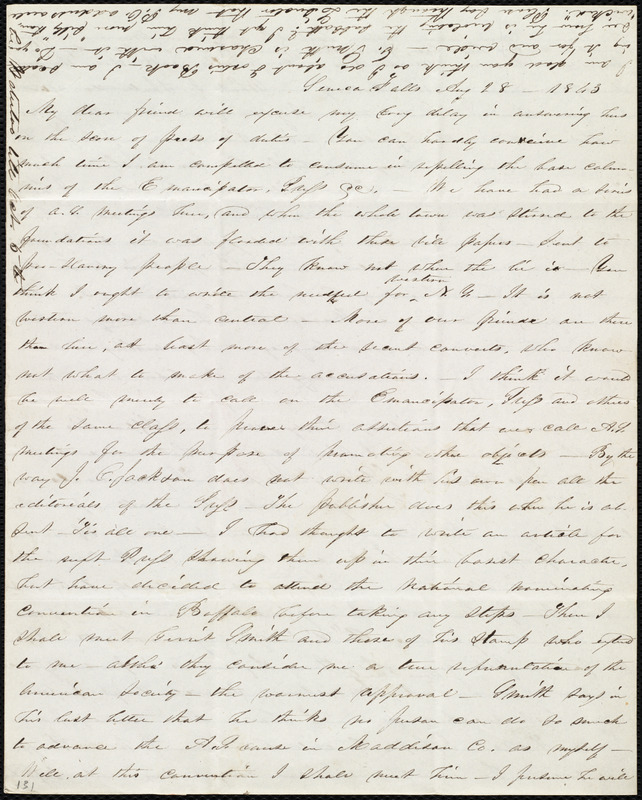 Seneca Falls Aug 28 - 1843
My dear friend will excuse my long delay in answering hers
on the score of press of duties - You can hardly conceive how
much time I am compelled to consume in repelling the base calum-
nies of the Emancipator, Press &c. - We have had a series
of A.S. meetings here, and when the whole town was stirred to the
foundations it was flooded with these vile papers - Sent to
pro-slavery people - They know not where the lie is - You
western
think I ought to write the needful for N.Y. - It is not
western more than central - More of our friends are there
than here, at least more of the recent converts, who know
not what to make of the accusations. - I think it would
be well merely to call on the Emancipator, Press and others
of the same class, to prove their assertions that we call A.S.
meetings for the purpose of promoting other objects - By the
way J. C. Jackson does not write with his own pen all the
editorials of the Press - The publisher does this when he is ab-
sent - 'Tis all one - I had thought to write an article for
the next Press showing them up in their basest character,
but have decided to attend the National nominating
convention in Buffalo before taking any steps - There I
shall meet Gerrit Smith and those of his stamp who extend
to me - altho' they consider me a true representative of the
American Society - the warmest approval - Smith says in
his last letter that he thinks no person can do so much
to advance the A.S. cause in Maddison Co. as myself -
Well, at this convention I shall meet him - I presume he will
131